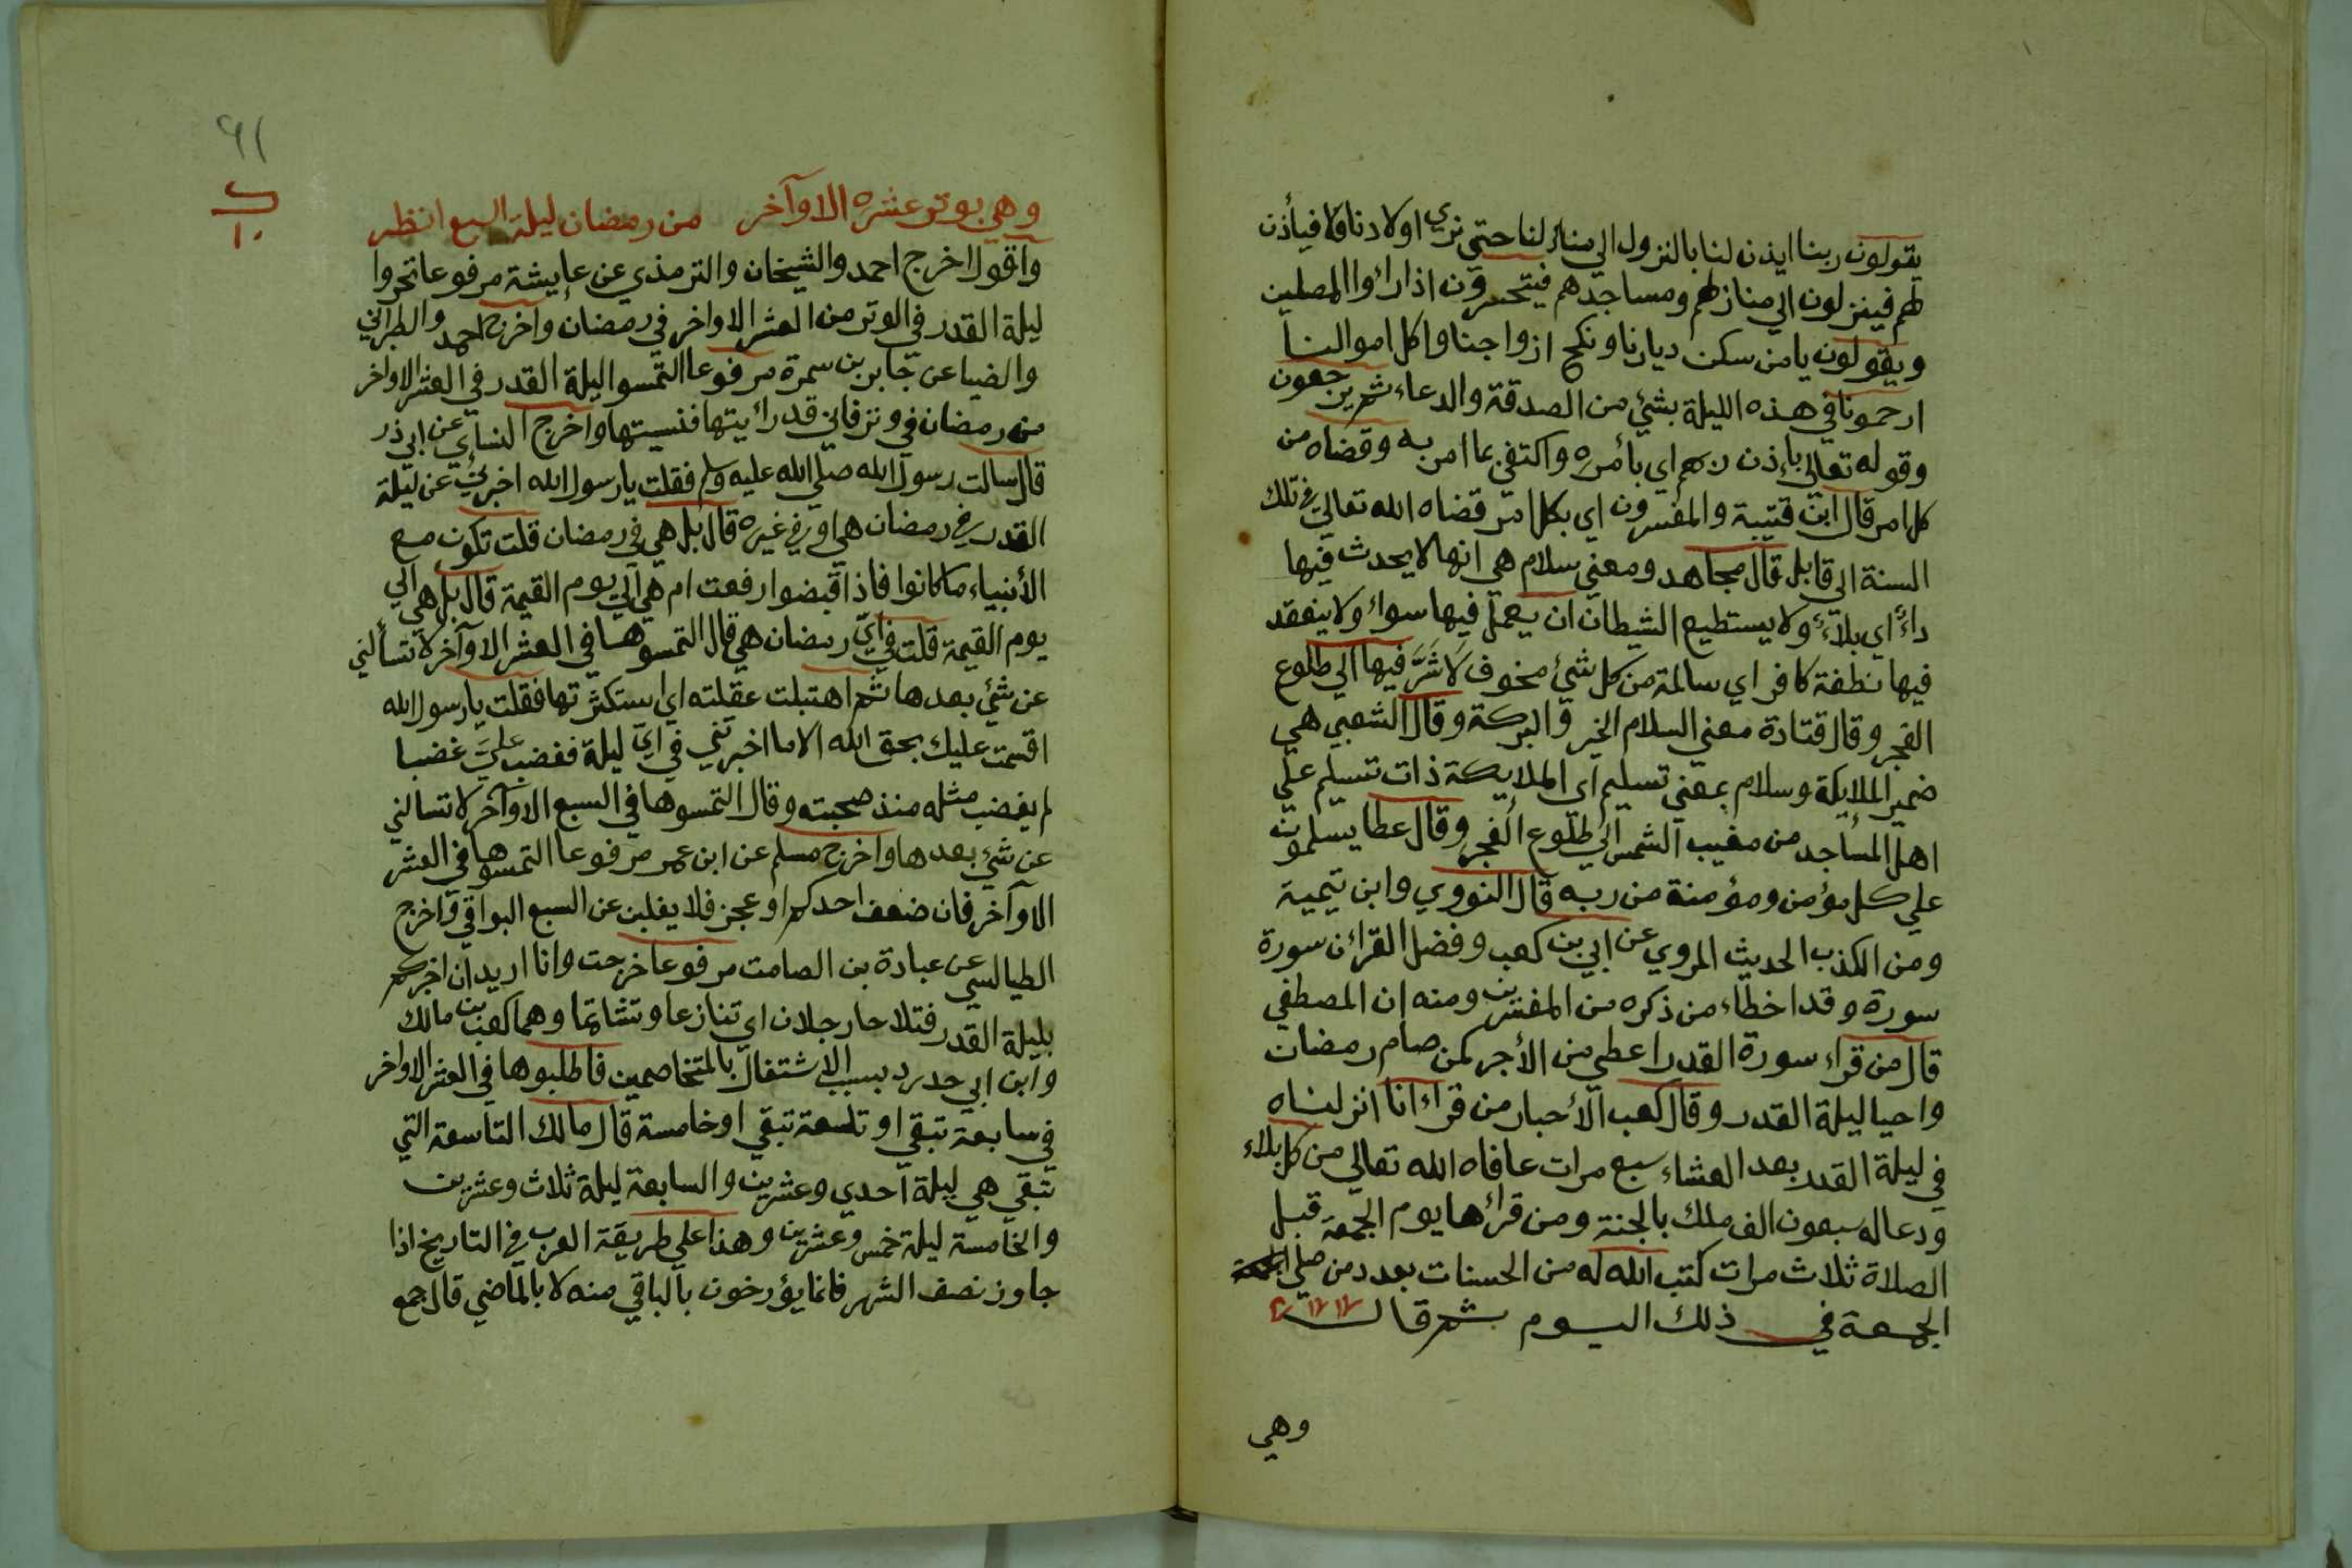 يقولون ربنا ايذن لنا بالنزول الي منازلنا حتي نري اولادنا فيأذن
لهم فينزلون الي منازلهم ومساجدهم فيتحسرون اذا راوا المصلين
ويقولون يا من سكن ديارنا ونكح ازواجنا واكل اموالنا
ارحمونا في هذه الليلة بشئ من الصدقة والدعاء ثم يرجعون
وقوله تعالي باذن ربهم اي بأمره واكتفي بما امر به وقضاه من
كل امر قال ابن قتيبة والمفسرون اي بكل امر قضاه الله تعالي في تلك
السنة الي قابل قال مجاهد ومعني سلام هي انها لا يحدث فيها
داء اي بلاء ولا يستطيع الشيطان ان يعمل فيها سواء ولا ينعقد
فيها نطفة كافر اي سالمة من كل شئ مخوف لا شر فيها الي طلوع
الفجر وقال قتادة معني السلام الخير والبركة وقال الشعبي هي
ضمير الملايكة وسلام بمعني تسليم اي الملايكة ذات تسليم علي
اهل المساجد من مغيب الشمس الي طلوع الفجر وقال عطا يسلمون
علي كل مؤمن ومؤمنة من ربه قال النووي وابن تيمية
ومن الكذب الحديث المروي عن ابي بن كعب وفضل القرائن سورة
سورة وقد اخطاء من ذكره من المفسرين ومنه ان المصطفي
قال من قراء سورة القدر اعطي من الأجر كمن صام رمضان
واحيا ليلة القدر وقال كعب الأحبار من قراء انا انزلناه
في ليلة القدر بعد العشاء سبع مرات عافاه الله تعالي من كل بلاء
ودعا له سبعون الف ملك بالجنة ومن قرائها يوم الجمعة قبل
الصلاة ثلاث مرات كتب الله له من الحسنات بعدد من صلي
الجمعة في ذلك اليوم ثم قال
وهي
٦١
ب
١٠
وهي بوتر عشره الاوآخر من رمضان ليلة السبع انظر
وأقول اخرج احمد والشيخان والترمذي عن عايشة مرفوعا تحروا
ليلة القدر في الوتر من العشر الاواخر في رمضان واخرج احمد والطبراني
والضيا عن جابر بن سمرة مرفوعا التمسوا ليلة القدر في العشر الاواخر
من رمضان في وتر فاني قد رائيتها فنسيتها واخرج النساي عن ابي ذر
قال سالت رسول الله صلي الله عليه وسلم فقلت يا رسول الله اخبرني عن ليلة
القدر في رمضان هي او في غيره قال بل هي في رمضان قلت تكون مع
الأنبياء ما كانوا فاذا قبضوا رفعت ام هي الي يوم القيمة قال بل هي الي
يوم القيمة قلت في اي رمضان هي قال التمسوها في العشر الاوآخر لا تسألني
عن شئ بعدها ثم اهتبلت عقلته اي استكثرتها فقلت يا رسول الله
اقسمت عليك بحق الله الا ما اخبرتني في اي ليلة فغضب علي غضبا
لم يغضب مثله منذ صحبته وقال التمسوها في السبع الاوآخر لا تسالني
عن شئ بعدها واخرج مسلم عن ابن عمر مرفوعا التمسوها في العشر
الاوآخر فان ضعف احدكم او عجز فلا يغلبن عن السبع البواقي واخرج
الطيالسي عن عبادة بن الصامت مرفوعا خرجت وانا اريد ان اخبركم
بليلة القدر فتلاحا رجلان اي تنازعا وتشاتما وهما كعب بن مالك
وابن ابي حدرد بسبب الاشتغال بالمتخاصمين فاطلبوها في العشر الاواخر
في سابعة تبقي او تاسعة تبقي او خامسة قال مالك التاسعة التي
تبقي هي ليلة احدي وعشرين والسابعة ليلة ثلاث وعشرين
والخامسة ليلة خمس وعشرين وهذا علي طريقة العرب في التاريخ اذا
جاوز نصف الشهر فانما يؤرخون بالباقي منه لا بالماضي قال جمع